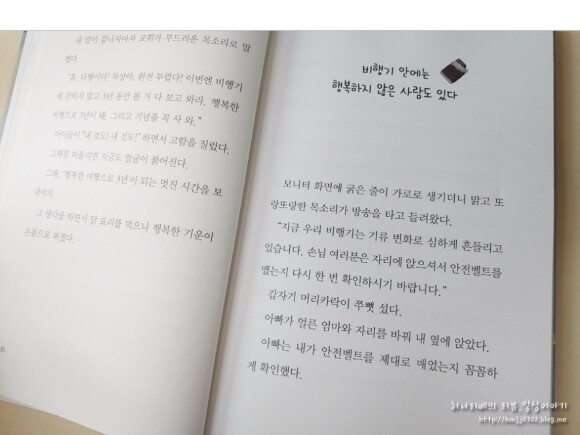 내 말이 끝나자마자 교휘가 부드러운 목소리로 말
했다.
완전 부럽다! 이번엔 비행기
내 간회지 말고 3년 동안 볼 거 다 보고 와라. 행복한
여행으로 3년이 돼. 그리고 기념품 꼭 사 와."
아이들이 "내 것도! 내 것도!" 하면서 고함을 질렀다.
그때를 떠올리면 지금도 얼굴이 붉어진다.
그래, '행복한 여행으로 3년'이 되는 멋진 시간을 보
내야지.
그 생각을 하면서 닭 요리를 먹으니 행복한 기운이
온몸으로 퍼졌다.
비행기 안에는
행복하지 않은 사람도 있다
모니터 화면에 굵은 줄이 가로로 생기더니 맑고 또
랑또랑한 목소리가 방송을 타고 들려왔다.
"지금 우리 비행기는 기류 변화로 심하게 흔들리고
있습니다. 손님 여러분은 자리에 앉으셔서 안전벨트를
맸는지 다시 한 번 확인하시기 바랍니다."
갑자기 머리카락이 쭈뼛 섰다.
아빠가 얼른 엄마와 자리를 바꿔 내 옆에 앉았다.
아빠는 내가 안전벨트를 제대로 매었는지 꼼꼼하
게 확인했다.
리뷰,일상이야기